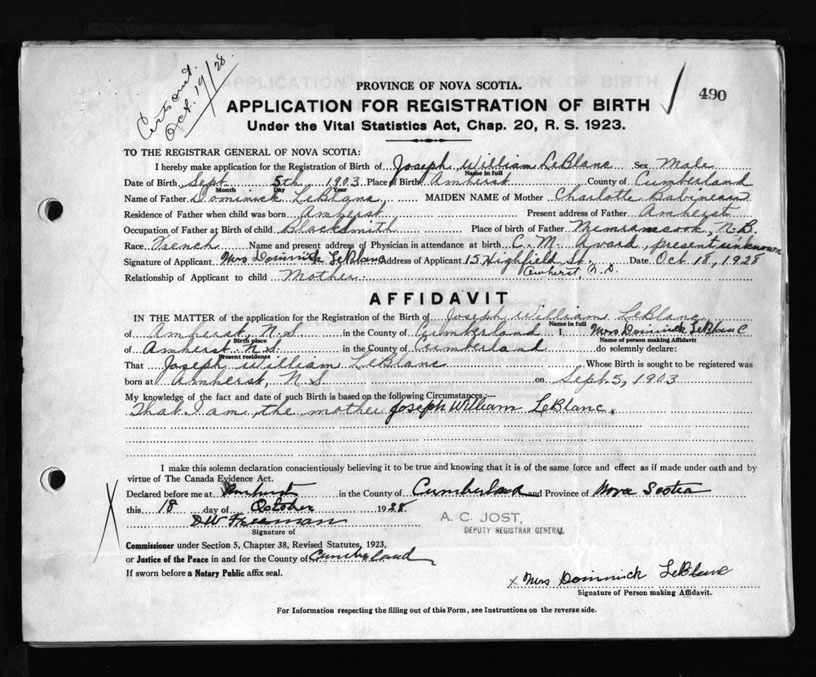 Cert sent.
Oct. 19/28.
PROVINCE OF NOVA SCOTIA.
490
APPLICATION FOR REGISTRATION OF BIRTH
Under the Vital Statistics Act, Chap. 20, R. S. 1923.
TO THE REGISTRAR GENERAL OF NOVA SCOTIA:
I hereby make application for the Registration of Birth of Joseph William LeBlanc Sex Male
Name in full
Date of Birth Sept 5th, 1903 Place of Birth Amherst County of Cumberland
Month Day Year
Name of Father Dominick LeBlanc, MAIDEN NAME of Mother Charlotte Babineau
Residence of Father when child was born Amherst Present address of Father Amherst
Occupation of Father at Birth of child Blacksmith Place of birth of Father Memramcook, N.B.
Race French Name and present address of Physician in attendance at birth C. M. Avard, present unknown
Signature of Applicant Mrs Dominick LeBlanc Address of Applicant 15 Highfield St. Date Oct 18, 1928
Amherst, N.S.
Relationship of Applicant to child Mother.
AFFIDAVIT
IN THE MATTER of the application for the Registration of the Birth of Joseph William LeBlanc
Name in full
of Amherst, N.S. in the County of Cumberland I, Mrs Dominick LeBlanc
Birth place Name of person making Affidavit
of Amherst N.S. in the County of Cumberland do solemnly declare:
Present residence
That Joseph William LeBlanc Whose Birth is sought to be registered was
born at Amherst, N.S. on Sept 5, 1903
My knowledge of the fact and date of such Birth is based on the following Circumstances:—
That I am the mother Joseph William LeBlanc.
I make this solemn declaration conscientiously believing it to be true and knowing that it is of the same force and effect as if made under oath and by
virtue of The Canada Evidence Act.
Declared before me at Amherst in the County of Cumberland and Province of Nova Scotia
this 18 day of October 1928.
DW Freeman
A. C. JOST,
DEPUTY REGISTRAR GENERAL
Signature of
Commissioner under Section 5, Chapter 38, Revised Statutes, 1923,
or Justice of the Peace in and for the County of Cumberland
If sworn before a Notary Public affix seal.
x Mrs Dominick LeBlanc
Signature of Person making Affidavit.
For Information respecting the filling out of this Form, see Instructions on the reverse side.